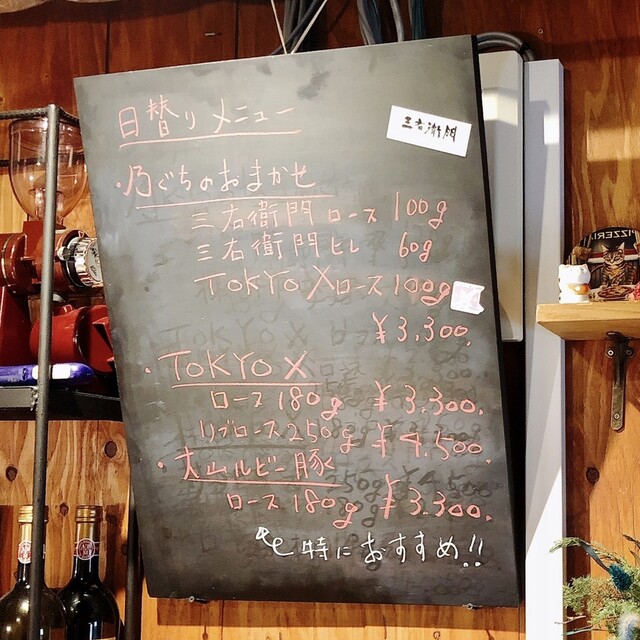 日替りメニュー
三右衛門
・乃ぐちのおまかせ
三右衛門ロース 100g
三右衛門ヒレ 60g
TOKYO Xロース 100g
¥3,300.
・TOKYO X
ロース 180g ¥3.300.
リブロース250g ¥4,500.
・大山ルビー豚
ロース 180g ¥3.300.
特におすすめ!!
PIZZERIA